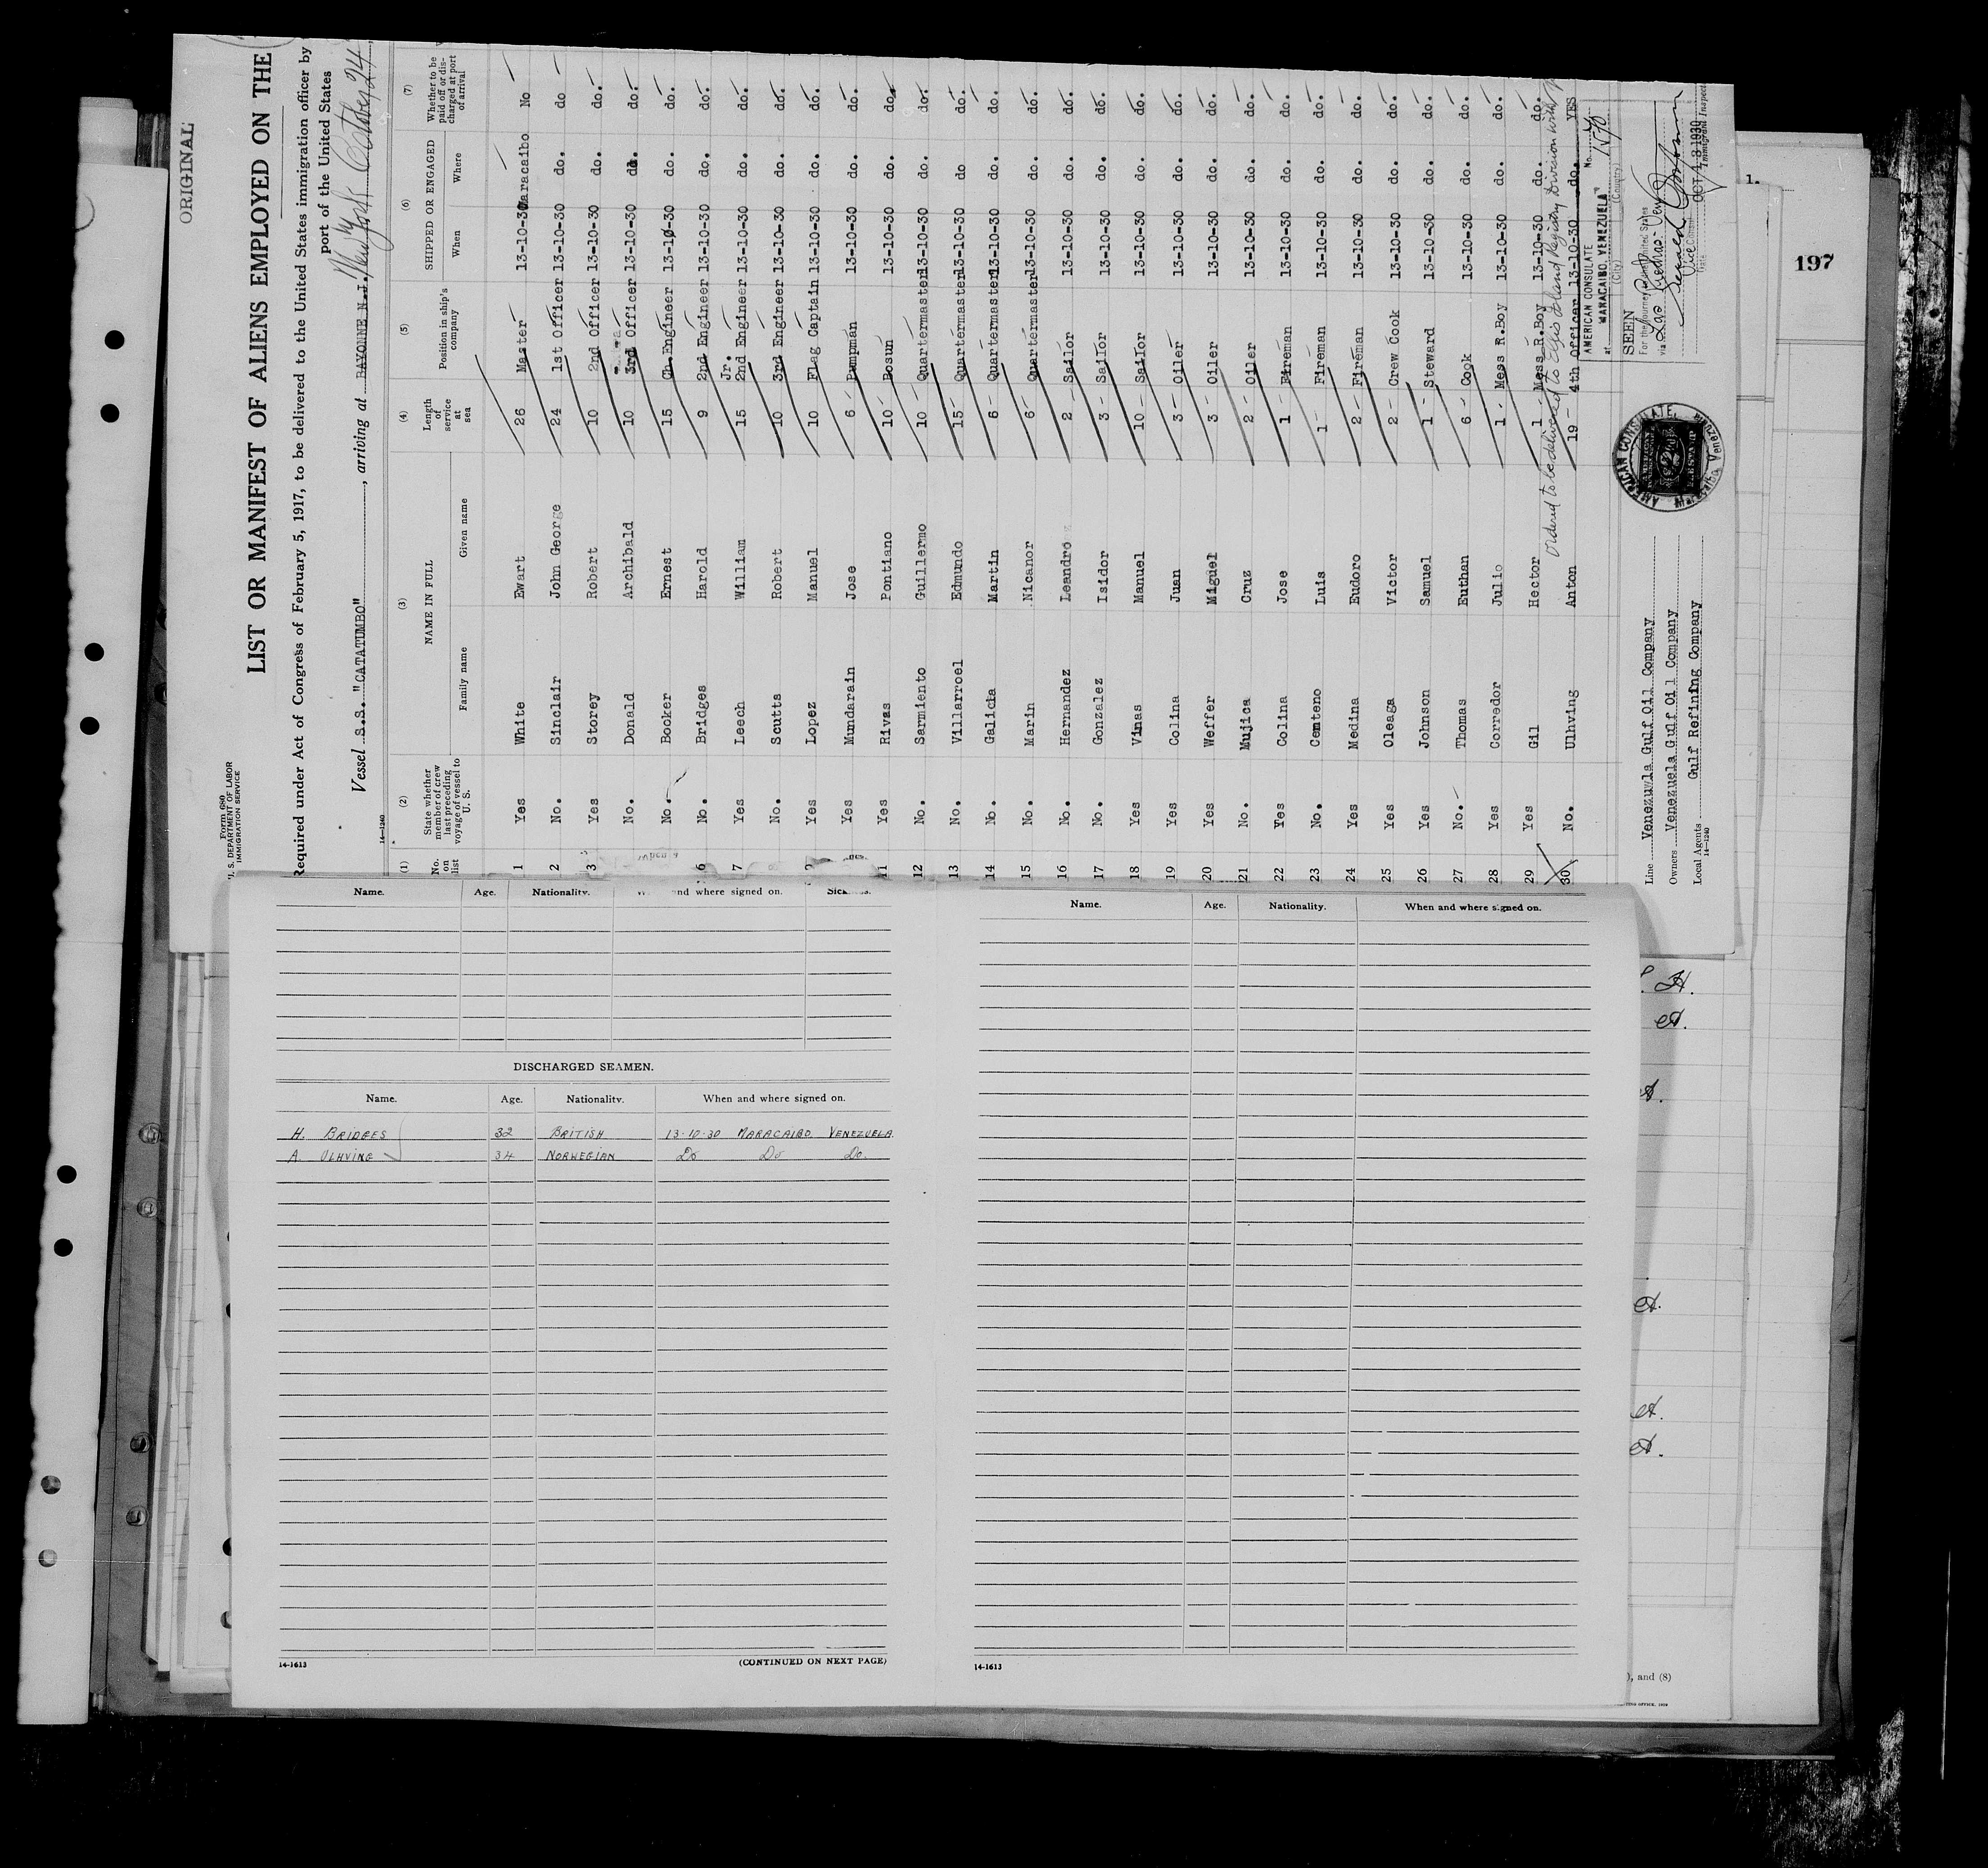 ORIGINAL
Form 680
U. S. DEPARTMENT OF LABOR
IMMIGRATION SERVICE
LIST OR MANIFEST OF ALIENS EMPLOYED ON THE
Required under Act of Congress of February 5, 1917, to be delivered to the United States immigration officer by
port of the United States
Vessel S.S. "CATATUMBO", arriving at BAYONNE N.J. New York October 24
14-1240
(1) (2) (3) (4) (5) (6) (7)
No. on list State whether member of crew last preceding voyage of vessel to U. S. NAME IN FULL Family name Given name Length of service at sea Position in ship's company SHIPPED OR ENGAGED When Where Whether to be paid off or discharged at port of arrival
1 Yes White Ewart 26 Master 13-10-30 Maracaibo No
2 No. Sinclair John George 24 1st Officer 13-10-30 do. do
3 Yes Storey Robert 10 2nd Officer 13-10-30 do. do.
No. Donald Archibald 10 3rd Officer 13-10-30 do. do.
No. Booker Ernest 15 Ch.Engineer 13-10-30 do. do.
6 No. Bridges Harold 9 2nd Engineer 13-10-30 do. do.
7 Yes Leech William 15 Jr. 2nd Engineer 13-10-30 do. do.
No. Scutts Robert 10 3rd Engineer 13-10-30 do. do.
9 Yes Lopez Manuel 10 Flag Captain 13-10-30 do. do.
Yes Mundarain Jose 6 Pumpman 13-10-30 do. do.
11 Yes Rivas Pontiano 10 Bosun 13-10-30 do. do.
12 No. Sarmiento Guillermo 10 Quartermaster 13-10-30 do. do.
13 No. Villarroel Edmundo 15 Quartermaster 13-10-30 do do.
14 No. Galicia Martin 6 Quartermaster 13-10-30 do. do.
15 No. Marin Nicanor 6 Quartermaster 13-10-30 do. do.
16 No. Hernandez Leandro 2 Sailor 13-10-30 do. do.
17 No. Gonzalez Isidor 3 Sailor 13-10-30 do. do.
18 Yes Vinas Manuel 10 Sailor 13-10-30 do. do.
19 Yes Colina Juan 3 Oiler 13-10-30 do. do.
20 Yes Weffer Miguel 3 Oiler 13-10-30 do. do.
21 No. Mujica Cruz 2 Oiler 13-10-30 do. do.
22 Yes Colina Jose 1 Fireman 13-10-30 do. do.
23 No. Centeno Luis 1 Fireman 13-10-30 do. do.
24 Yes Medina Eudoro 2 Fireman 13-10-30 do. do.
25 Yes Oleaga Victor 2 Crew Cook 13-10-30 do. do.
26 Yes Johnson Samuel 1 Steward 13-10-30 do. do.
27 No. Thomas Euthan 6 Cook 13-10-30 do. do.
28 Yes Corredor Julio 1 Mess R.Boy 13-10-30 do. do.
29 Yes Gil Hector 1 Mess R.Boy 13-10-30 do. do.
Ordered to be delivered to Ellis Island Registry Division with
30 No. Ulhving Anton 19 4th Officer 13-10-30 do. YES
AMERICAN CONSULATE No.
at MARACAIBO, VENEZUELA
(City) (Country)
SEEN
For the journey to the United States
via Las Piedras: Ven
Vice Consul
Date OCT 13 1930
Immigrant Inspect
AMERICAN CONSULATE
Maracaibo Venezuela
Line Venezuwla Gulf Oil Company
Owners Venezuela Gulf Oil Company
Local Agents Gulf Refining Company
14-1240
197
Name. Age. Nationality. and where signed on.
DISCHARGED SEAMEN.
Name. Age. Nationality. When and where signed on.
H. BRIDGES 32 BRITISH 13-10-30 MARACAIBO. VENEZUELA.
A. ULHVING 34 NORWEGIAN Do Do Do.
14-1613 (CONTINUED ON NEXT PAGE)
Name. Age. Nationality. When and where signed on.
14-1613
), and (8)